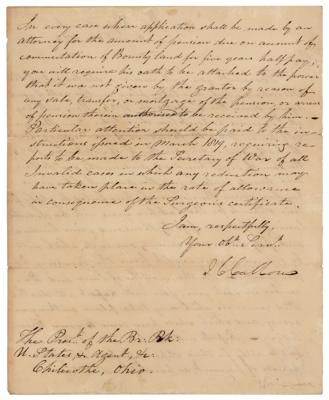 In every case where application shall be made by an
attorney for the amount of pension due on amount of
commutation of Bounty land for five years half pay,
you will require his oath to be attached to the power
that it was not given by the grantor by reason of
any sale, transfer, or mortgage of the pension, or arrears
of pension therein authorised to be received by him.—
Particular attention should be paid to the in-
structions issued in March 1819, requiring re-
ports to be made to the Secretary of War of all
Invalid cases in which any reduction may
have taken place in the rate of allowance
in consequence of the Surgeons certificate.
I am, respectfully,
Your Obt. Servt.
J C Calhoun
The Prest. of the Br. Bk.
U. States, & Agent, &c.
Chilicothe, Ohio.